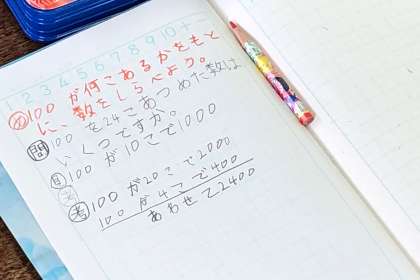 1 2 3 4 5 6 7 8 9 10 + -
め 100が何こあるかをもと
に、数をしらべよう。
問 100を24こあつめた数は
いくつですか。
見 100が10こで1000
考 100が20こで2000
100が4こで400
あわせて2400